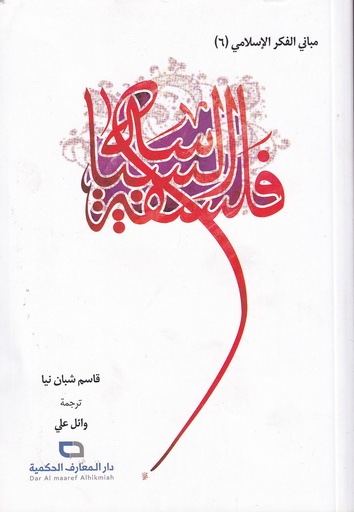 مباني الفكر الإسلامي (٦)
فلسفة السياسة
قاسم شبان نيا
ترجمة
وائل علي
دار المعارف الحكمية
Dar Al maaref Alhikmiah